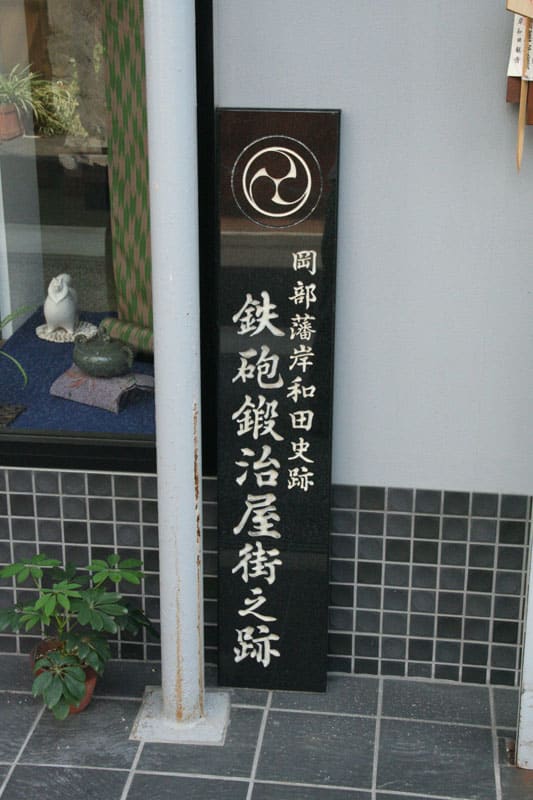 岡部藩岸和田史跡
鉄砲鍛治屋街之跡